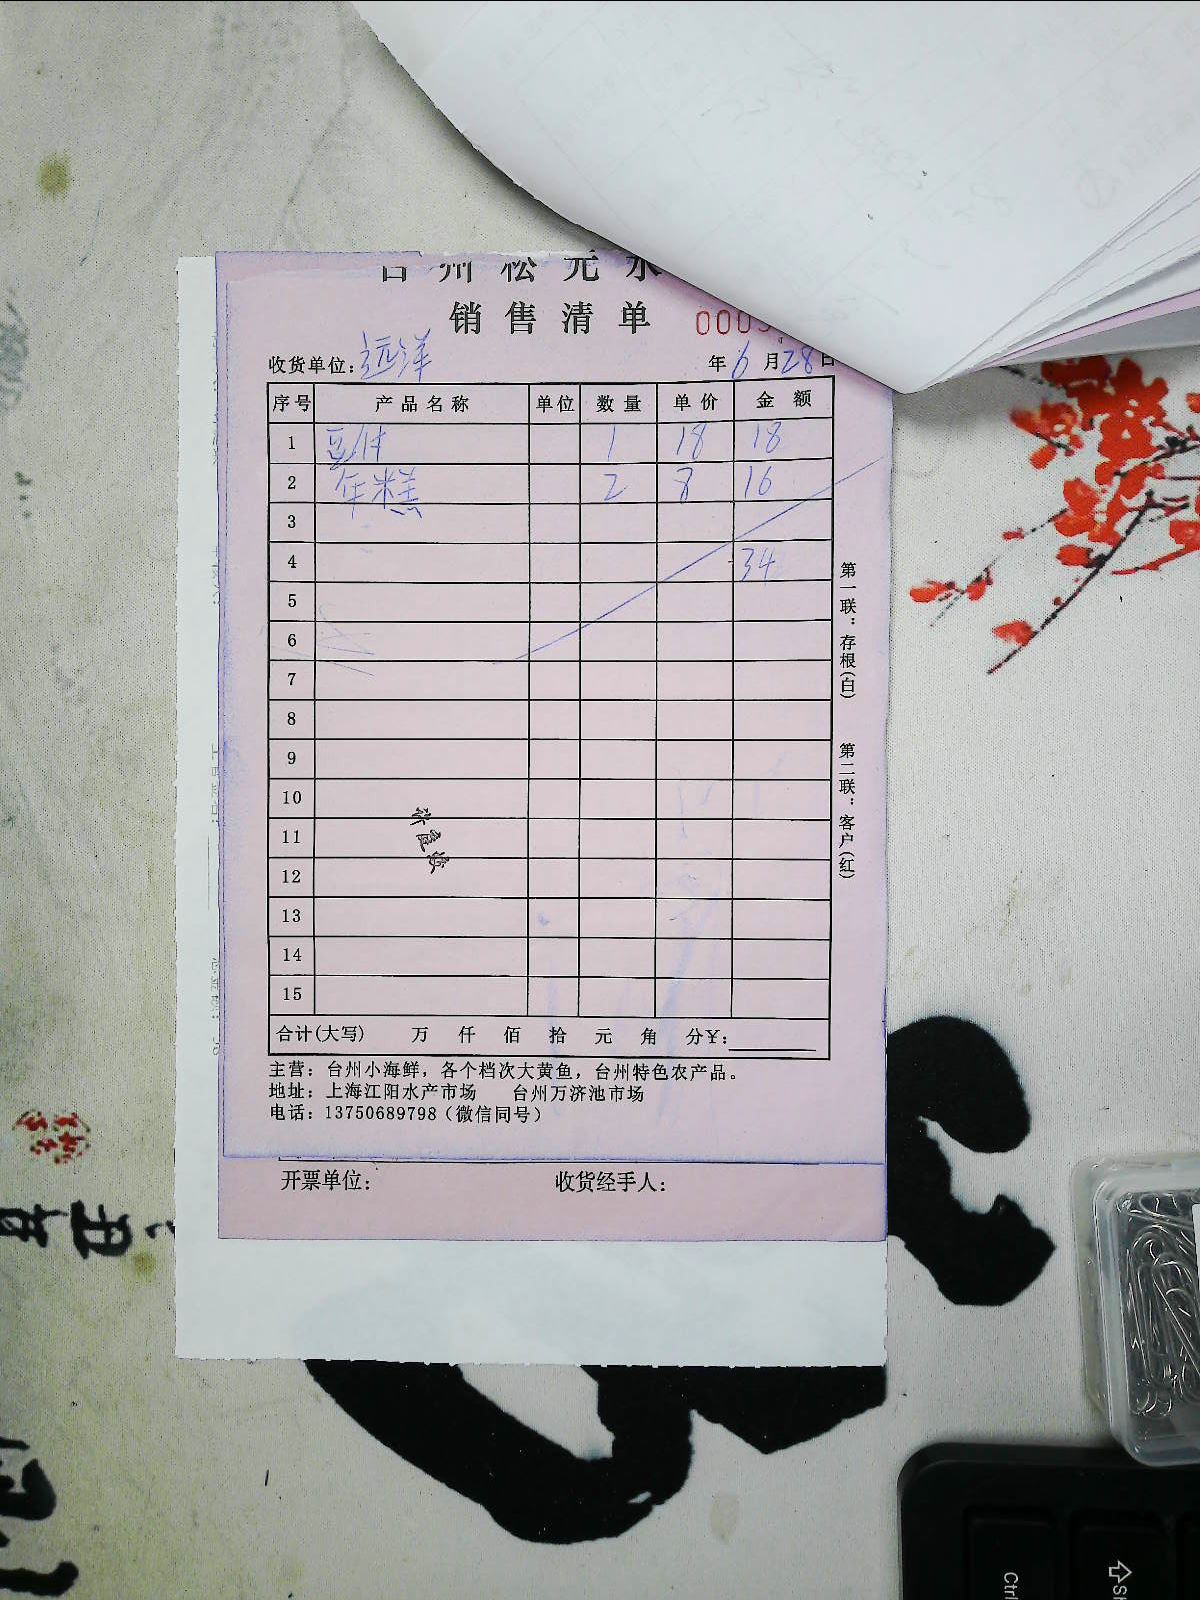 台州松元水
销售清单 0003
收货单位: 远洋 年 6 月 28 日
序号 产品名称 单位 数量 单价 金额
1 豆付 1 18 18
2 年糕 2 8 16
3
4 34
5
6
7
8
9
10
11
12
13
14
15
合计(大写) 万 仟 佰 拾 元 角 分¥:
主营: 台州小海鲜, 各个档次大黄鱼, 台州特色农产品。
地址: 上海江阳水产市场 台州万济池市场
电话: 13750689798 (微信同号)
开票单位: 收货经手人:
第一联: 存根(白) 第二联: 客户(红)
Ctrl